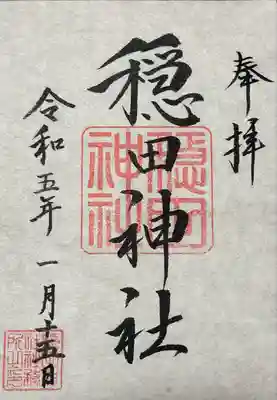 奉拝
穏田神社
令和五年 一月十五日
穏田神社